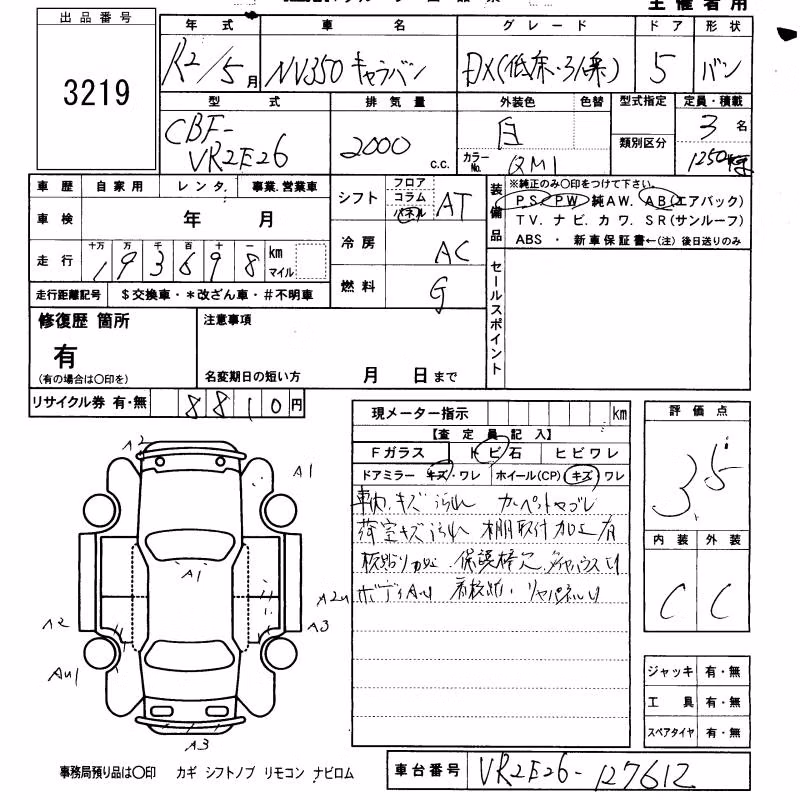 主催者用
出品番号
3219
年式 車名 グレード ドア 形状
R2/5月 NV350 キャラバン DX(低床・3人乗) 5 バン
型式 排気量 外装色 色替 型式指定 定員・積載
CBF-
VR2E26 2000 c.c. 白 カラーNo. QM1 類別区分 3名
1250kg
車歴 自家用 レンタ. 事業.営業車
車検 年 月
走行 十万 万 千 百 十 一 km マイル
1 9 3 6 9 8
走行距離記号 $交換車・*改ざん車・#不明車
シフト フロア コラム パネル AT
冷房 AC
燃料 G
装備品
※純正のみ〇印をつけて下さい。
PS. PW 純AW. AB(エアバック)
TV. ナビ. カワ. SR(サンルーフ)
ABS ・ 新車保証書←(注)後日送りのみ
セールスポイント
修復歴 箇所
有
(有の場合は〇印を)
注意事項
名変期日の短い方 月 日まで
リサイクル券 有・無 8810円
現メーター指示 km
【査定員記入】
Fガラス トビ石 ヒビワレ
ドアミラー キズ・ワレ ホイール(CP) キズ・ワレ
車内キズ汚れ カーペットヤブレ
荷室キズ汚れ 棚取付加工有
板貼り加工
ボディAU
評価点
3.5
内装 外装
C C
ジャッキ 有・無
工具 有・無
スペアタイヤ 有・無
A2
A1
A1
A2
A2u
A3
Au1
A3
事務局預り品は〇印 カギ シフトノブ リモコン ナビロム
車台番号 VR2E26-127612